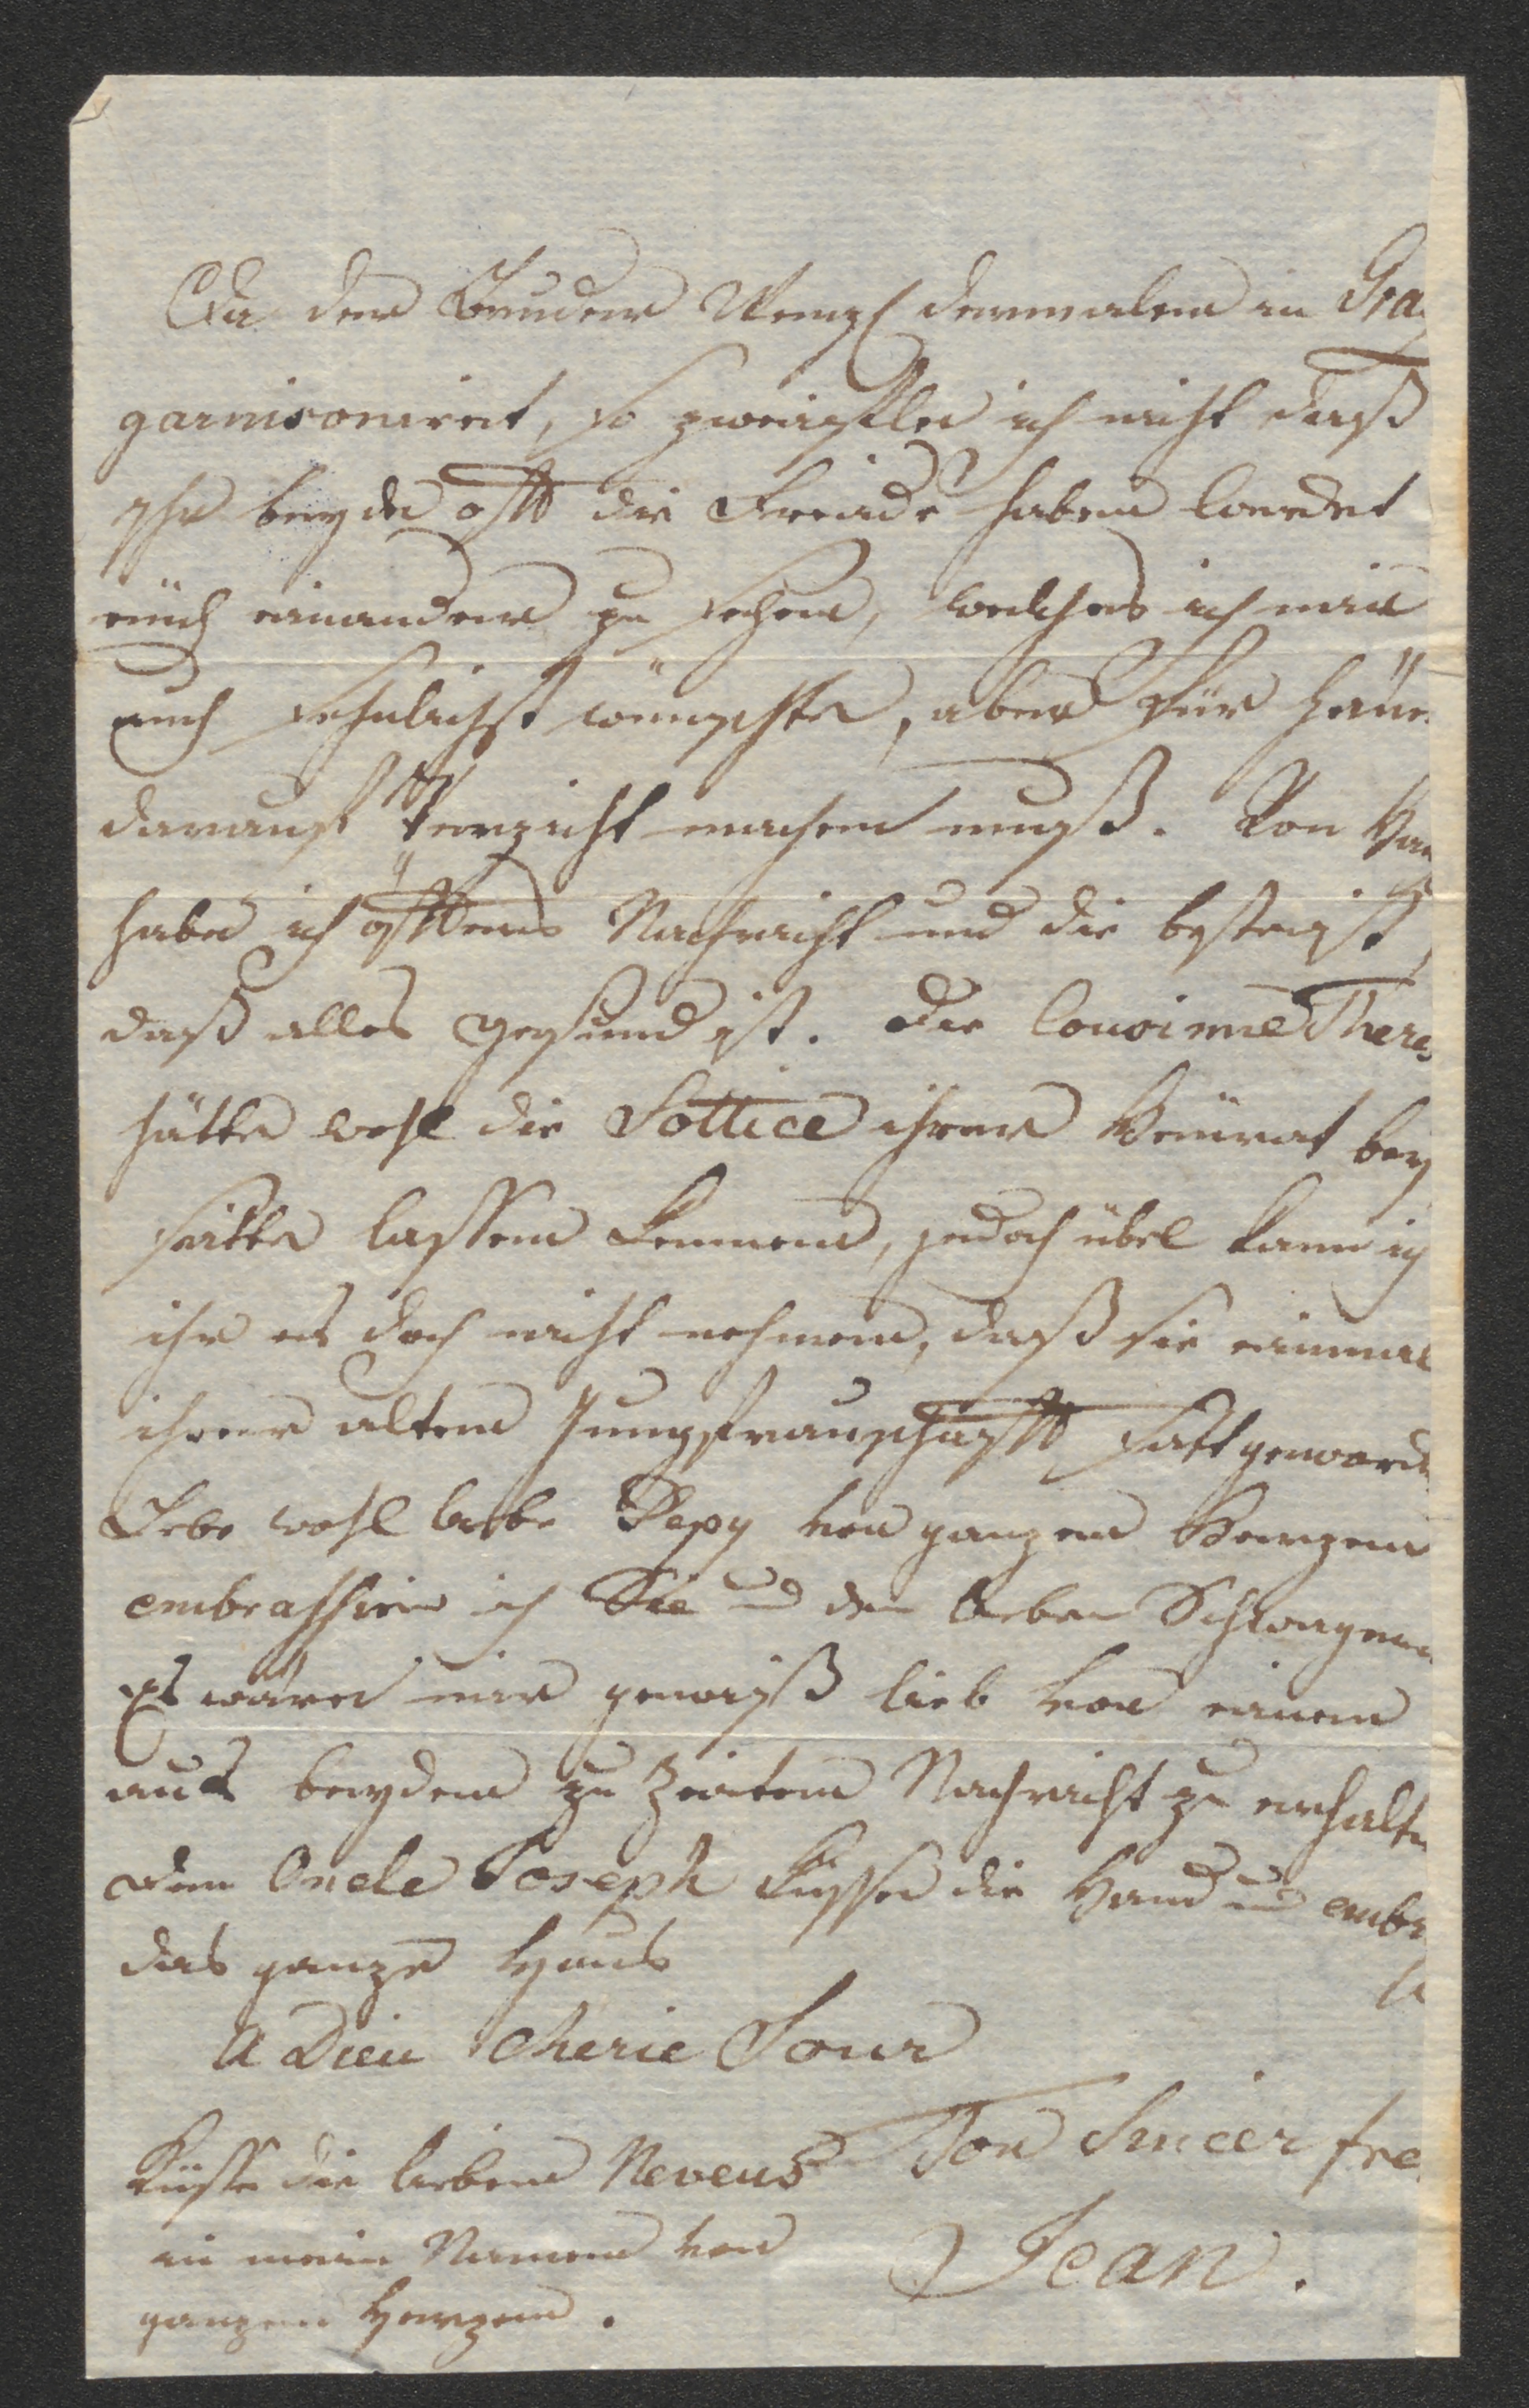 Da der Bruder Wenzl dermalen in Gra
garnisoniret, so zweifle ich nicht daß
Ihr beyde offt die Freide haben werdet
eüch einander zu sehen, welches ich mir
auch sehnlichst wünschte, aber für heüer
darauf Verzicht machen muß. Von Hau
habe ich öffters Nachricht und die beste ist
daß alles gesund ist. Die Cousine Theres
hätte wohl die Sottice ihrer Heürat bey
seitte lassen kennen, jedoch übel kann ich
ihr es doch nicht nehmen, daß sie einmal
ihrer alten Jungfrauschafft satt geword
Lebe wohl liebe Pepy von ganzen Herzen
embrassier ich Sie und den lieben Schwager
Es wäre mir gewiß lieb von einem
aus beyden zu Zeiten Nachricht zu erhalten
dem Oncle Joseph küsse die Hand und embr
das ganze Haus
A Dieu Cherie Sour
Ton Sincer fre
Jean.
Küsse die lieben Neveus
in mein Namen von
ganzen Herzen.